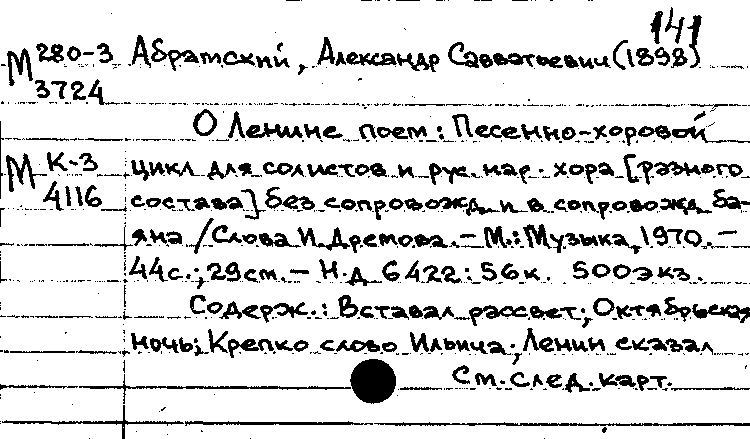 141
М 280-3 Абратский, Александр Савватьевич (1898)
3724
О Ленине поем: Песенно-хоровой
М К-3 цикл для солистов и рус. нар. хора [разного
4116 состава] без сопровожд. и в сопровожд. ба-
яна / Слова И. Дремова. – М.: Музыка, 1970. –
44с.; 29см. – Н.д. 6422: 56к. 500экз.
Содерж.: Вставал рассвет; Октябрьская
ночь; Крепко слово Ильича; Ленин сказал
См. след. карт.